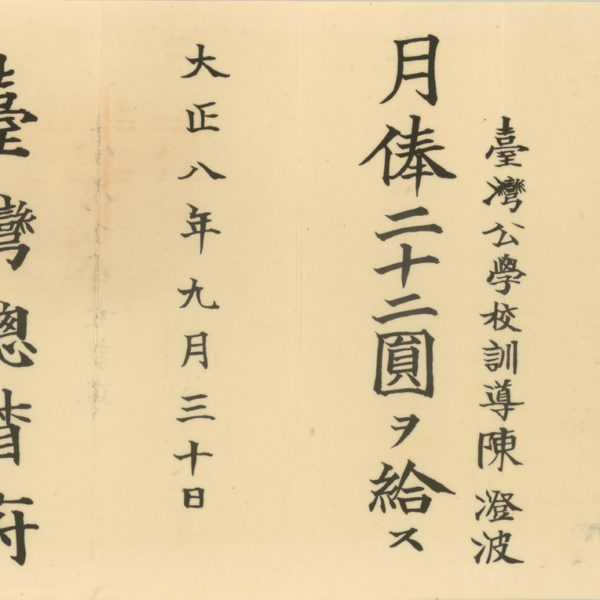 臺灣公學校訓導陳澄波
月俸二十二圓ヲ給ス
大正八年九月三十日
臺灣總督府